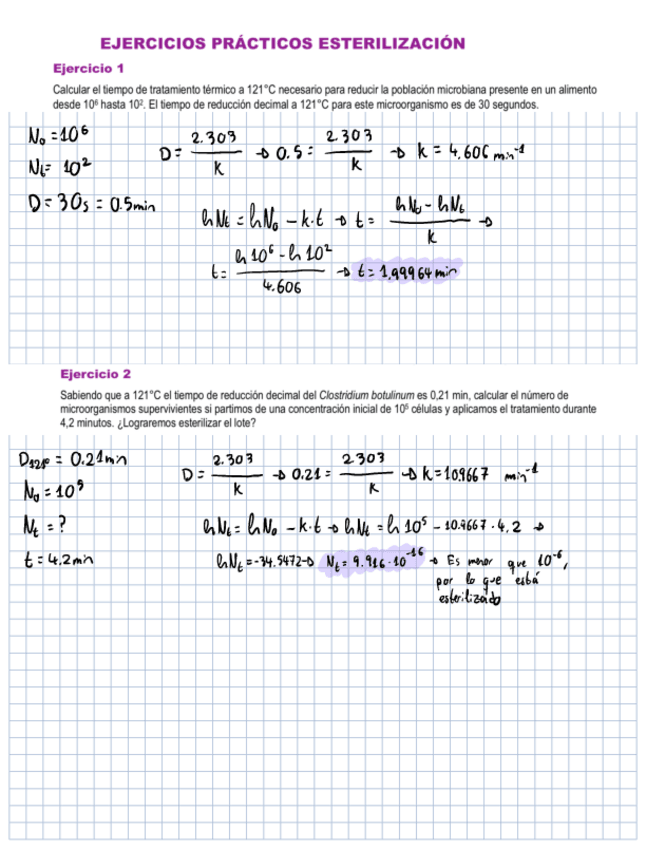 EJERCICIOS PRÁCTICOS ESTERILIZACIÓN
Ejercicio 1
Calcular el tiempo de tratamiento térmico a 121°C necesario para reducir la población microbiana presente en un alimento
desde 10⁶ hasta 10². El tiempo de reducción decimal a 121°C para este microorganismo es de 30 segundos.
N₀ = 10⁶
Nt = 10²
D = 30s = 0.5min
D = 2.303/K → 0.5 = 2.303/K → k = 4.606 min⁻¹
lnNt = lnN₀ - k·t → t = (lnN₀ - lnNt)/K →
t = (ln 10⁶ - ln 10²)/4.606 → t = 1,99964 min
Ejercicio 2
Sabiendo que a 121°C el tiempo de reducción decimal del Clostridium botulinum es 0,21 min, calcular el número de
microorganismos supervivientes si partimos de una concentración inicial de 10⁵ células y aplicamos el tratamiento durante
4,2 minutos. ¿Lograremos esterilizar el lote?
D₁₂₁º = 0.21min
N₀ = 10⁵
Nt = ?
t = 4.2min
D = 2.303/K → 0.21 = 2.303/K → k = 10.9667 min⁻¹
lnNt = lnN₀ - k·t → lnNt = ln 10⁵ - 10.9667 · 4,2 →
lnNt = -34.5472 → Nt = 9.916·10⁻¹⁶ → Es menor que 10⁻⁶,
por lo que está
esterilizado